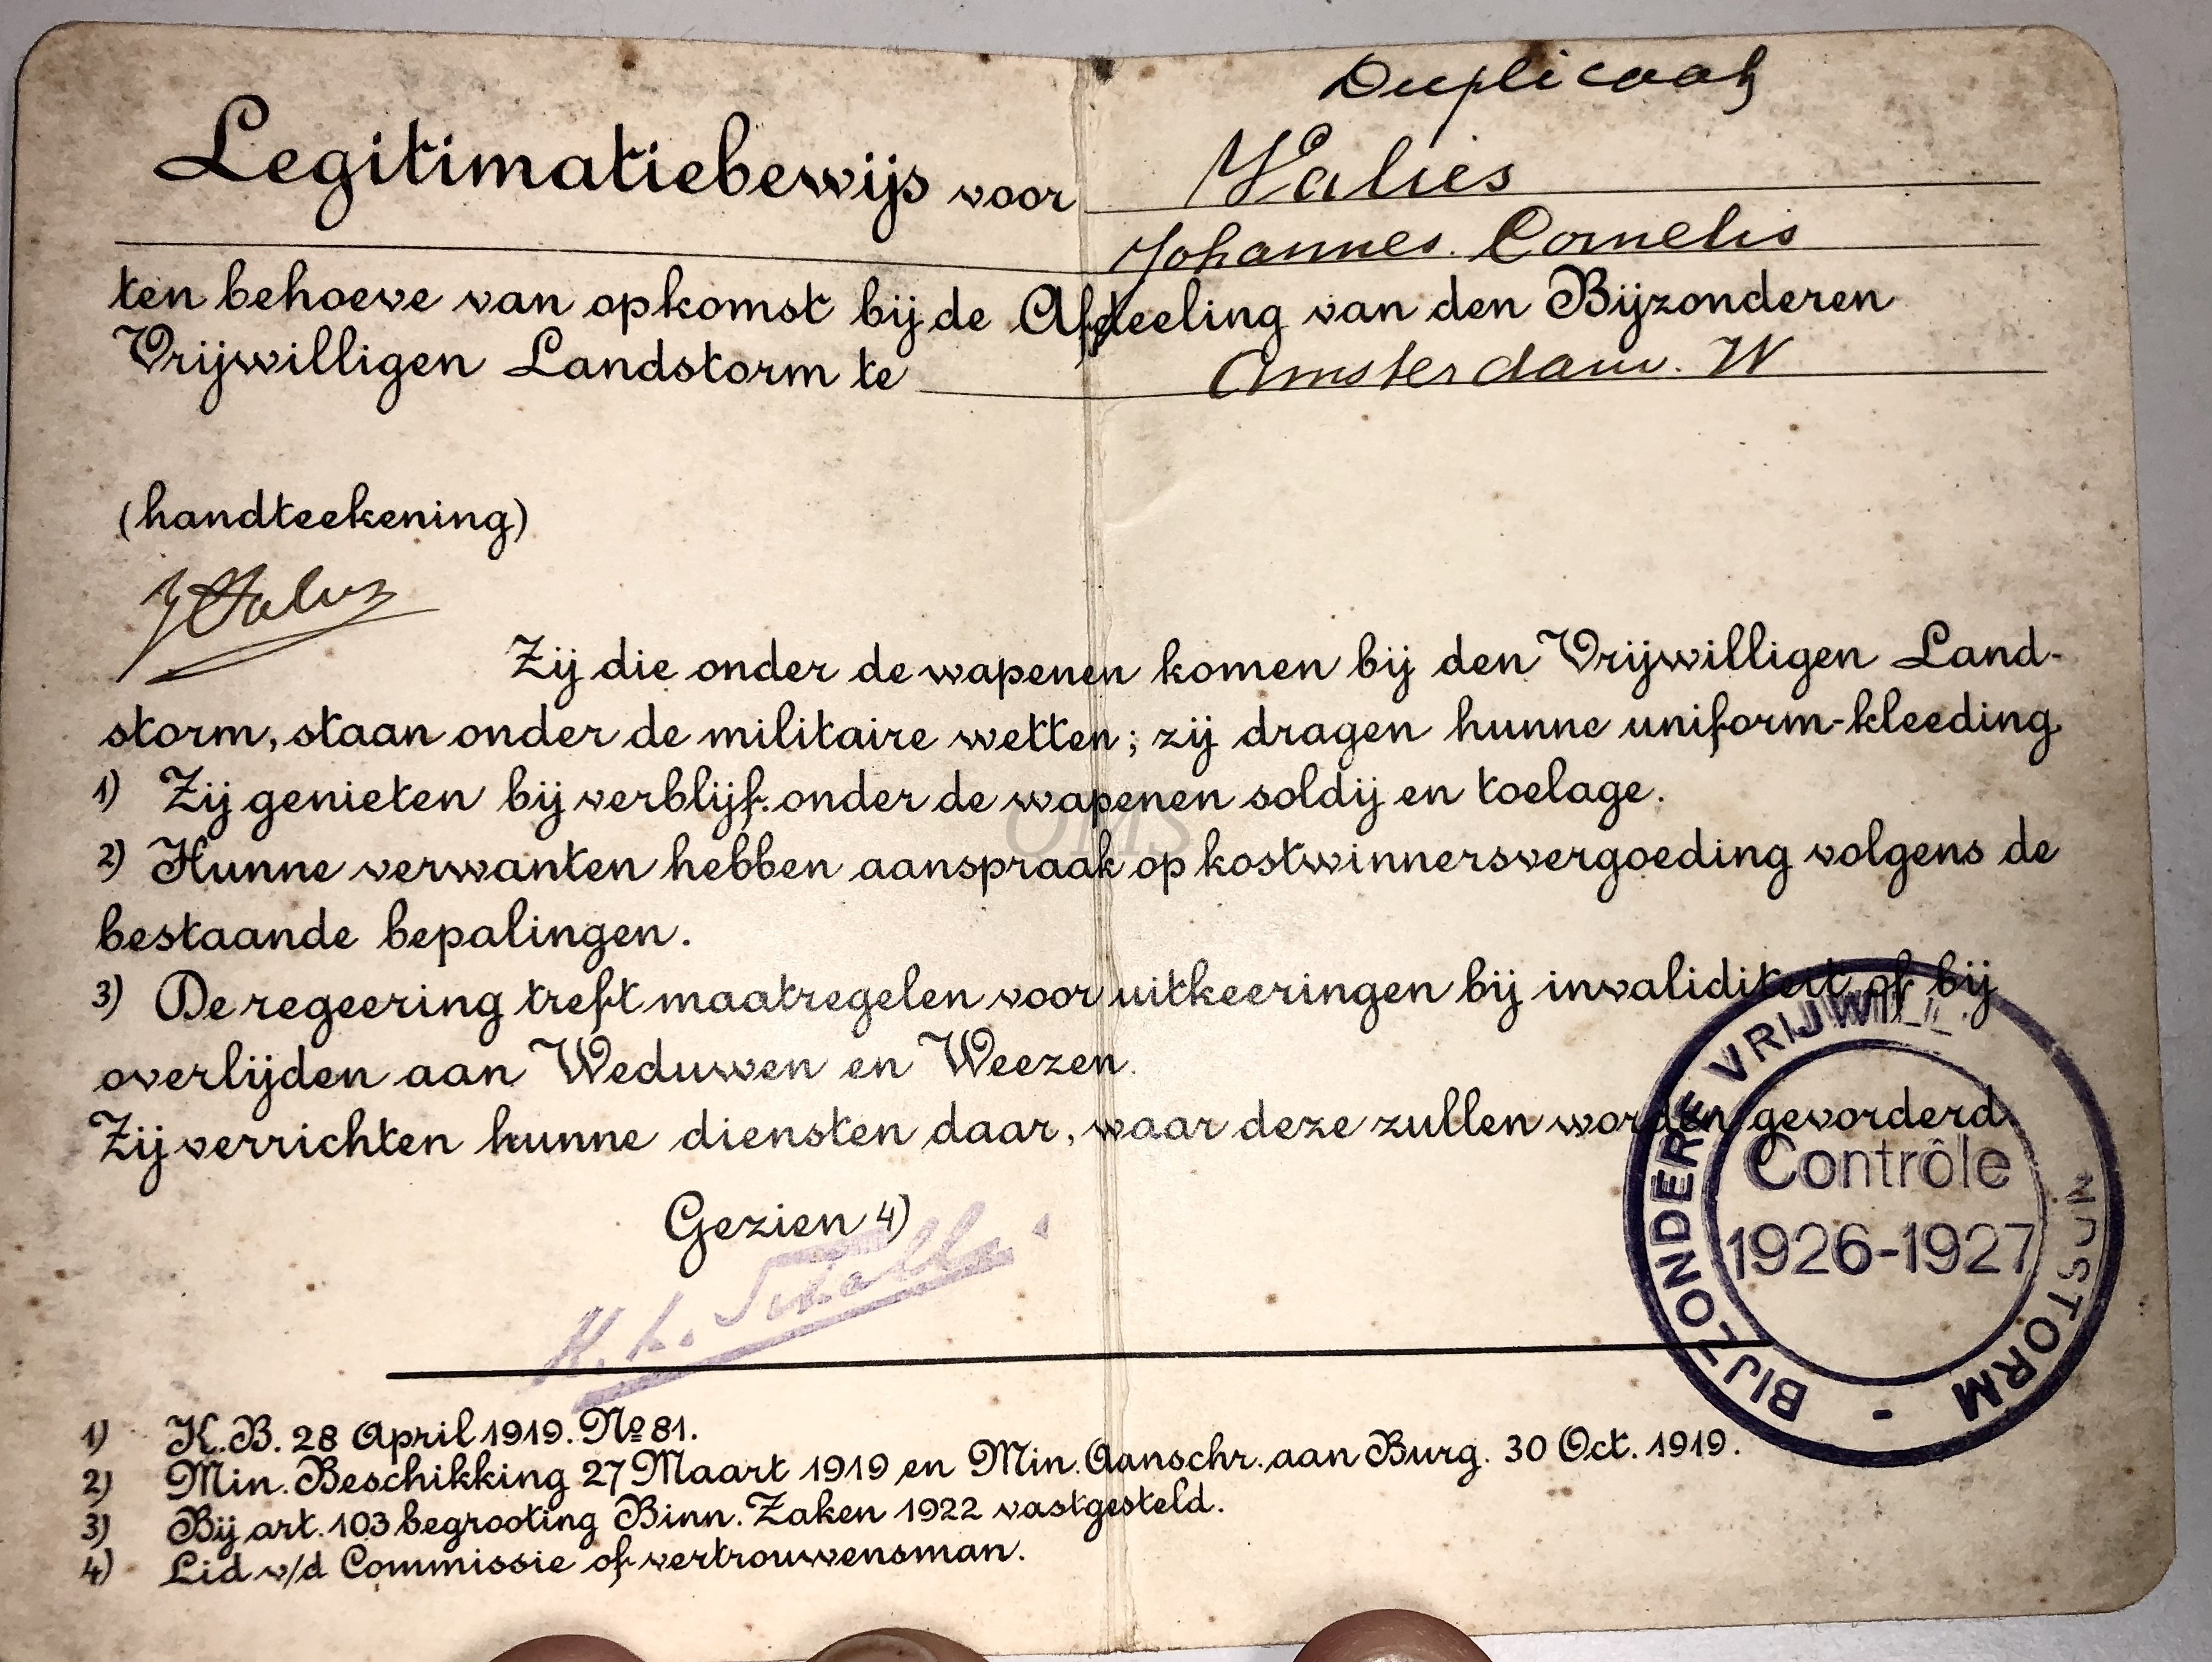 Duplicaat
Legitimatiebewijs voor Valies
Johannes. Cornelis
ten behoeve van opkomst bij de Afdeeling van den Bijzonderen
Vrijwilligen Landstorm te Amsterdam. W
(handteekening)
Zij die onder de wapenen komen bij den Vrijwilligen Land-
storm, staan onder de militaire wetten; zij dragen hunne uniform-kleeding
1) Zij genieten bij verblijf onder de wapenen soldij en toelage.
OMS
2) Hunne verwanten hebben aanspraak op kostwinnersvergoeding volgens de
bestaande bepalingen.
3) De regeering treft maatregelen voor uitkeeringen bij invaliditeit of bij
overlijden aan Weduwen en Weezen.
Zij verrichten hunne diensten daar, waar deze zullen worden gevorderd.
Gezien 4)
BIJZONDERE VRIJWILL. STORM -
Contrôle
1926-1927
1) K.B. 28 April 1919. № 81.
2) Min. Beschikking 27 Maart 1919 en Min. Aanschr. aan Burg. 30 Oct. 1919.
3) Bij art. 103 begrooting Binn. Zaken 1922 vastgesteld.
4) Lid v/d Commissie of vertrouwensman.